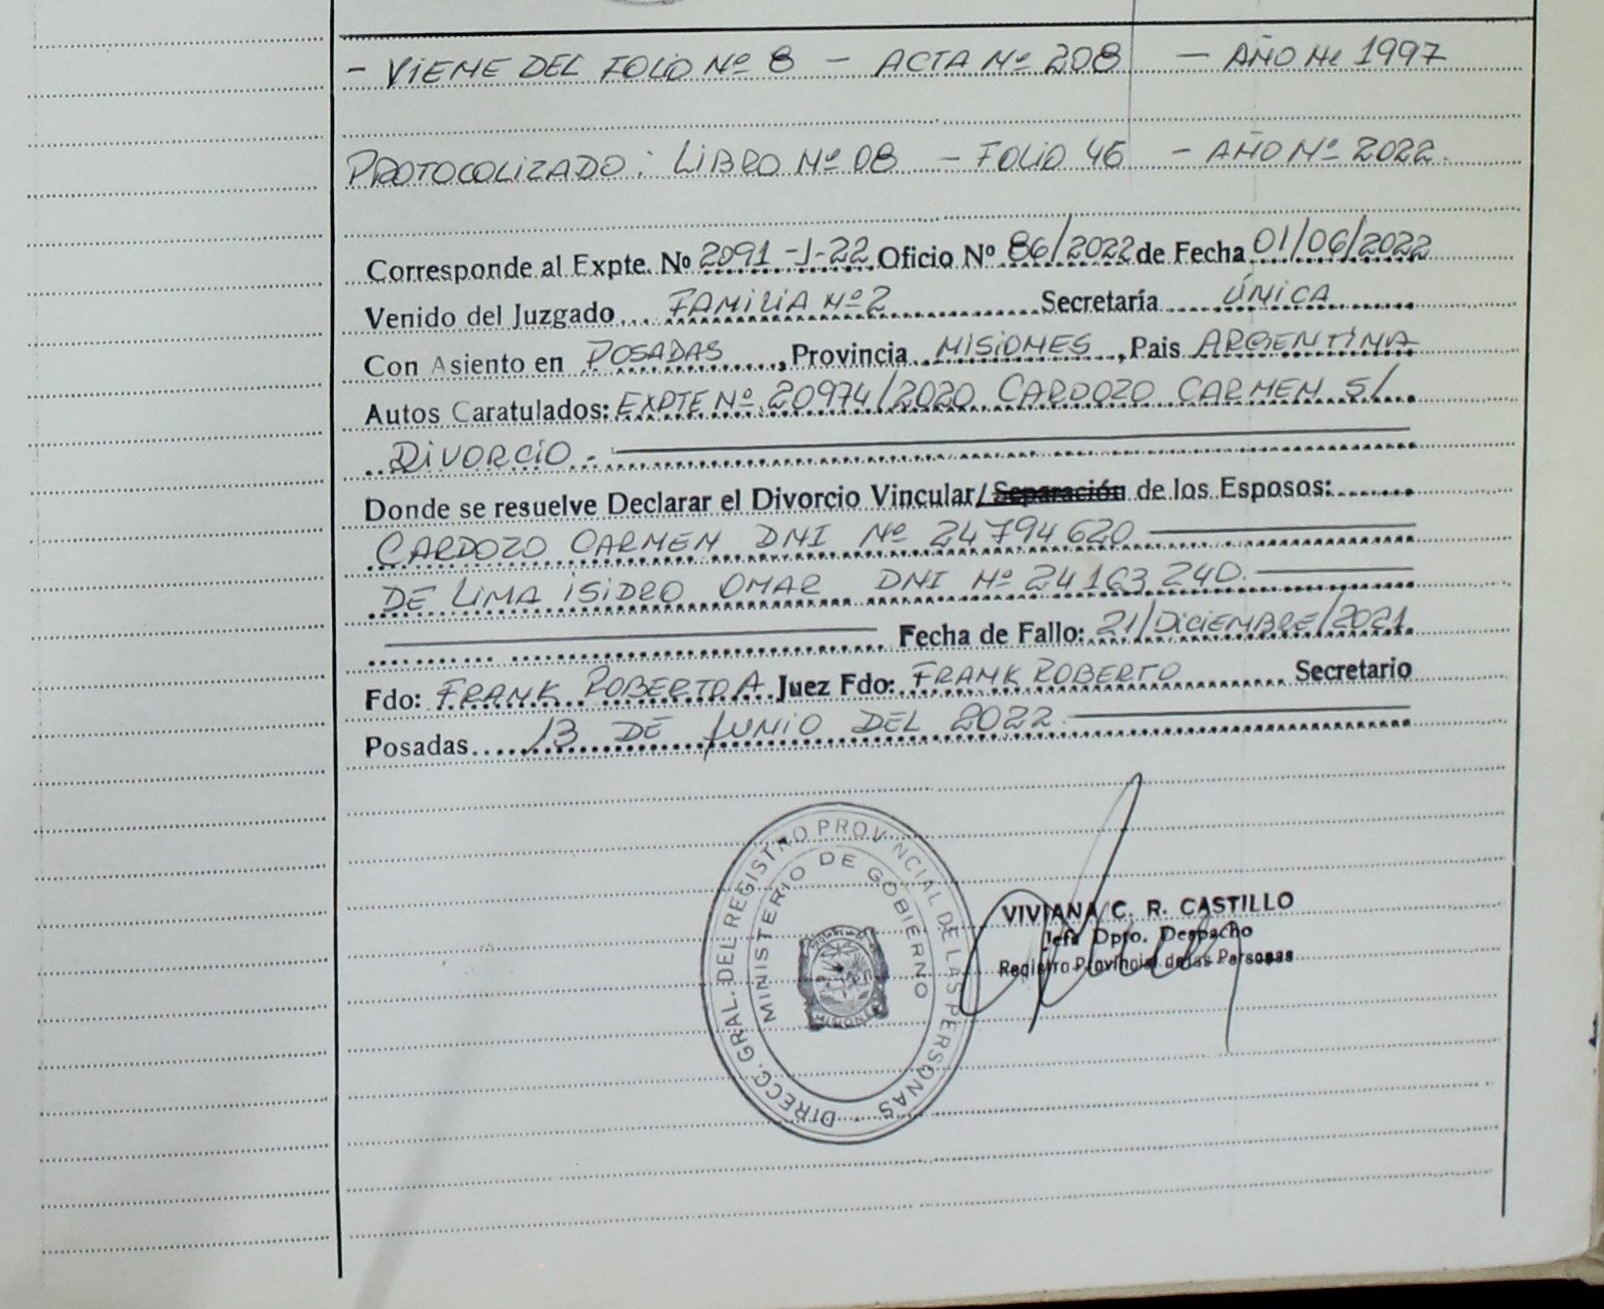 - VIENE DEL FOLIO Nº 8 - ACTA Nº 208 - AÑO Nº 1997
PROTOCOLIZADO: LIBRO Nº 08 - FOLIO 46 - AÑO Nº 2022.
Corresponde al Expte. Nº 2091-J-22 Oficio Nº 86/2022 de Fecha 01/06/2022
Venido del Juzgado... FAMILIA Nº 2 Secretaría ÚNICA
Con Asiento en POSADAS, Provincia MISIONES, Pais ARGENTINA
Autos Caratulados: EXPTE Nº 20974/2020 CARDOZO CARMEN S/
DIVORCIO.-
Donde se resuelve Declarar el Divorcio Vincular/Separación de los Esposos:
CARDOZO CARMEN DNI Nº 24794620
DE LIMA ISIDRO OMAR DNI Nº 24163240.
Fecha de Fallo: 21/DICIEMBRE/2021
Fdo: FRANK ROBERTO A Juez Fdo: FRANK ROBERTO Secretario
Posadas 13 DE JUNIO DEL 2022
DIRECC. GRAL. DEL REGISTRO PROVINCIAL DE LAS PERSONAS
MINISTERIO DE GOBIERNO
MISIONES
VIVIANA C. R. CASTILLO
Jefa Dpto. Despacho
Registro Provincial de las Personas